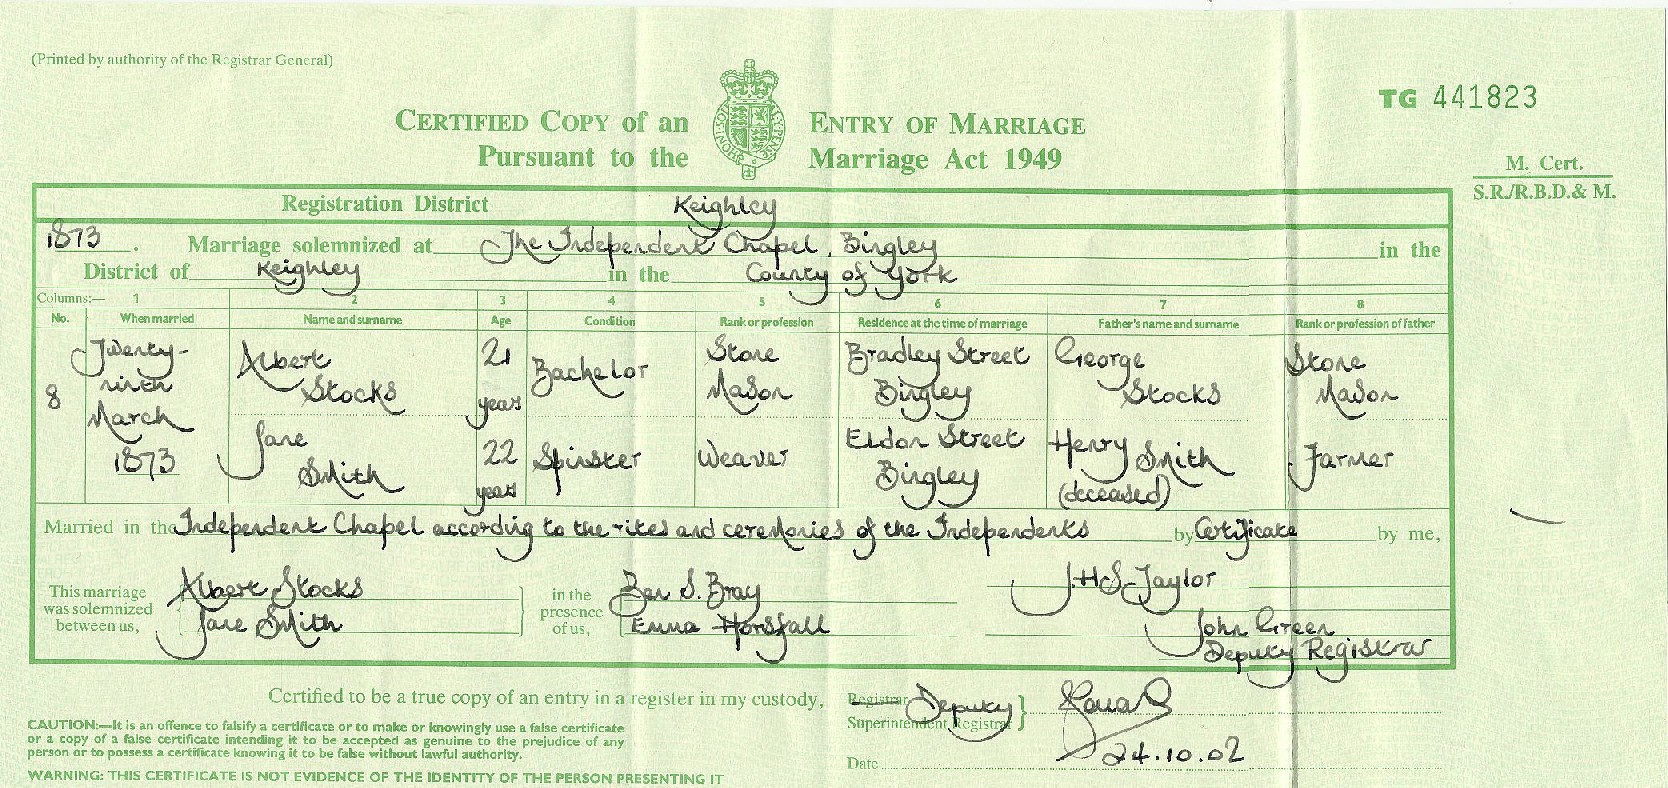 (Printed by authority of the Registrar General)
TG 441823
CERTIFIED COPY of an ENTRY OF MARRIAGE
Pursuant to the Marriage Act 1949
M. Cert.
S.R./R.B.D.& M.
Registration District Keighley
1873. Marriage solemnized at The Independent Chapel, Bingley in the
District of Keighley in the County of York
Columns:— 1 2 3 4 5 6 7 8
No. When married Name and surname Age Condition Rank or profession Residence at the time of marriage Father's name and surname Rank or profession of father
8 Twenty-ninth March 1873
Albert Stocks 21 years Bachelor Stone Mason Bradley Street Bingley George Stocks Stone Mason
Jane Smith 22 years Spinster Weaver Eldon Street Bingley Henry Smith (deceased) Farmer
Married in the Independent Chapel according to the rites and ceremonies of the Independents by Certificate by me,
This marriage was solemnized between us,
Albert Stocks
Jane Smith
in the presence of us,
Ben S. Bray
Emma Horsfall
J.H.S. Taylor
John Green
Deputy Registrar
Certified to be a true copy of an entry in a register in my custody,
Registrar Deputy
Superintendent Registrar
24.10.02
Date
CAUTION:—It is an offence to falsify a certificate or to make or knowingly use a false certificate
or a copy of a false certificate intending it to be accepted as genuine to the prejudice of any
person or to possess a certificate knowing it to be false without lawful authority.
WARNING: THIS CERTIFICATE IS NOT EVIDENCE OF THE IDENTITY OF THE PERSON PRESENTING IT